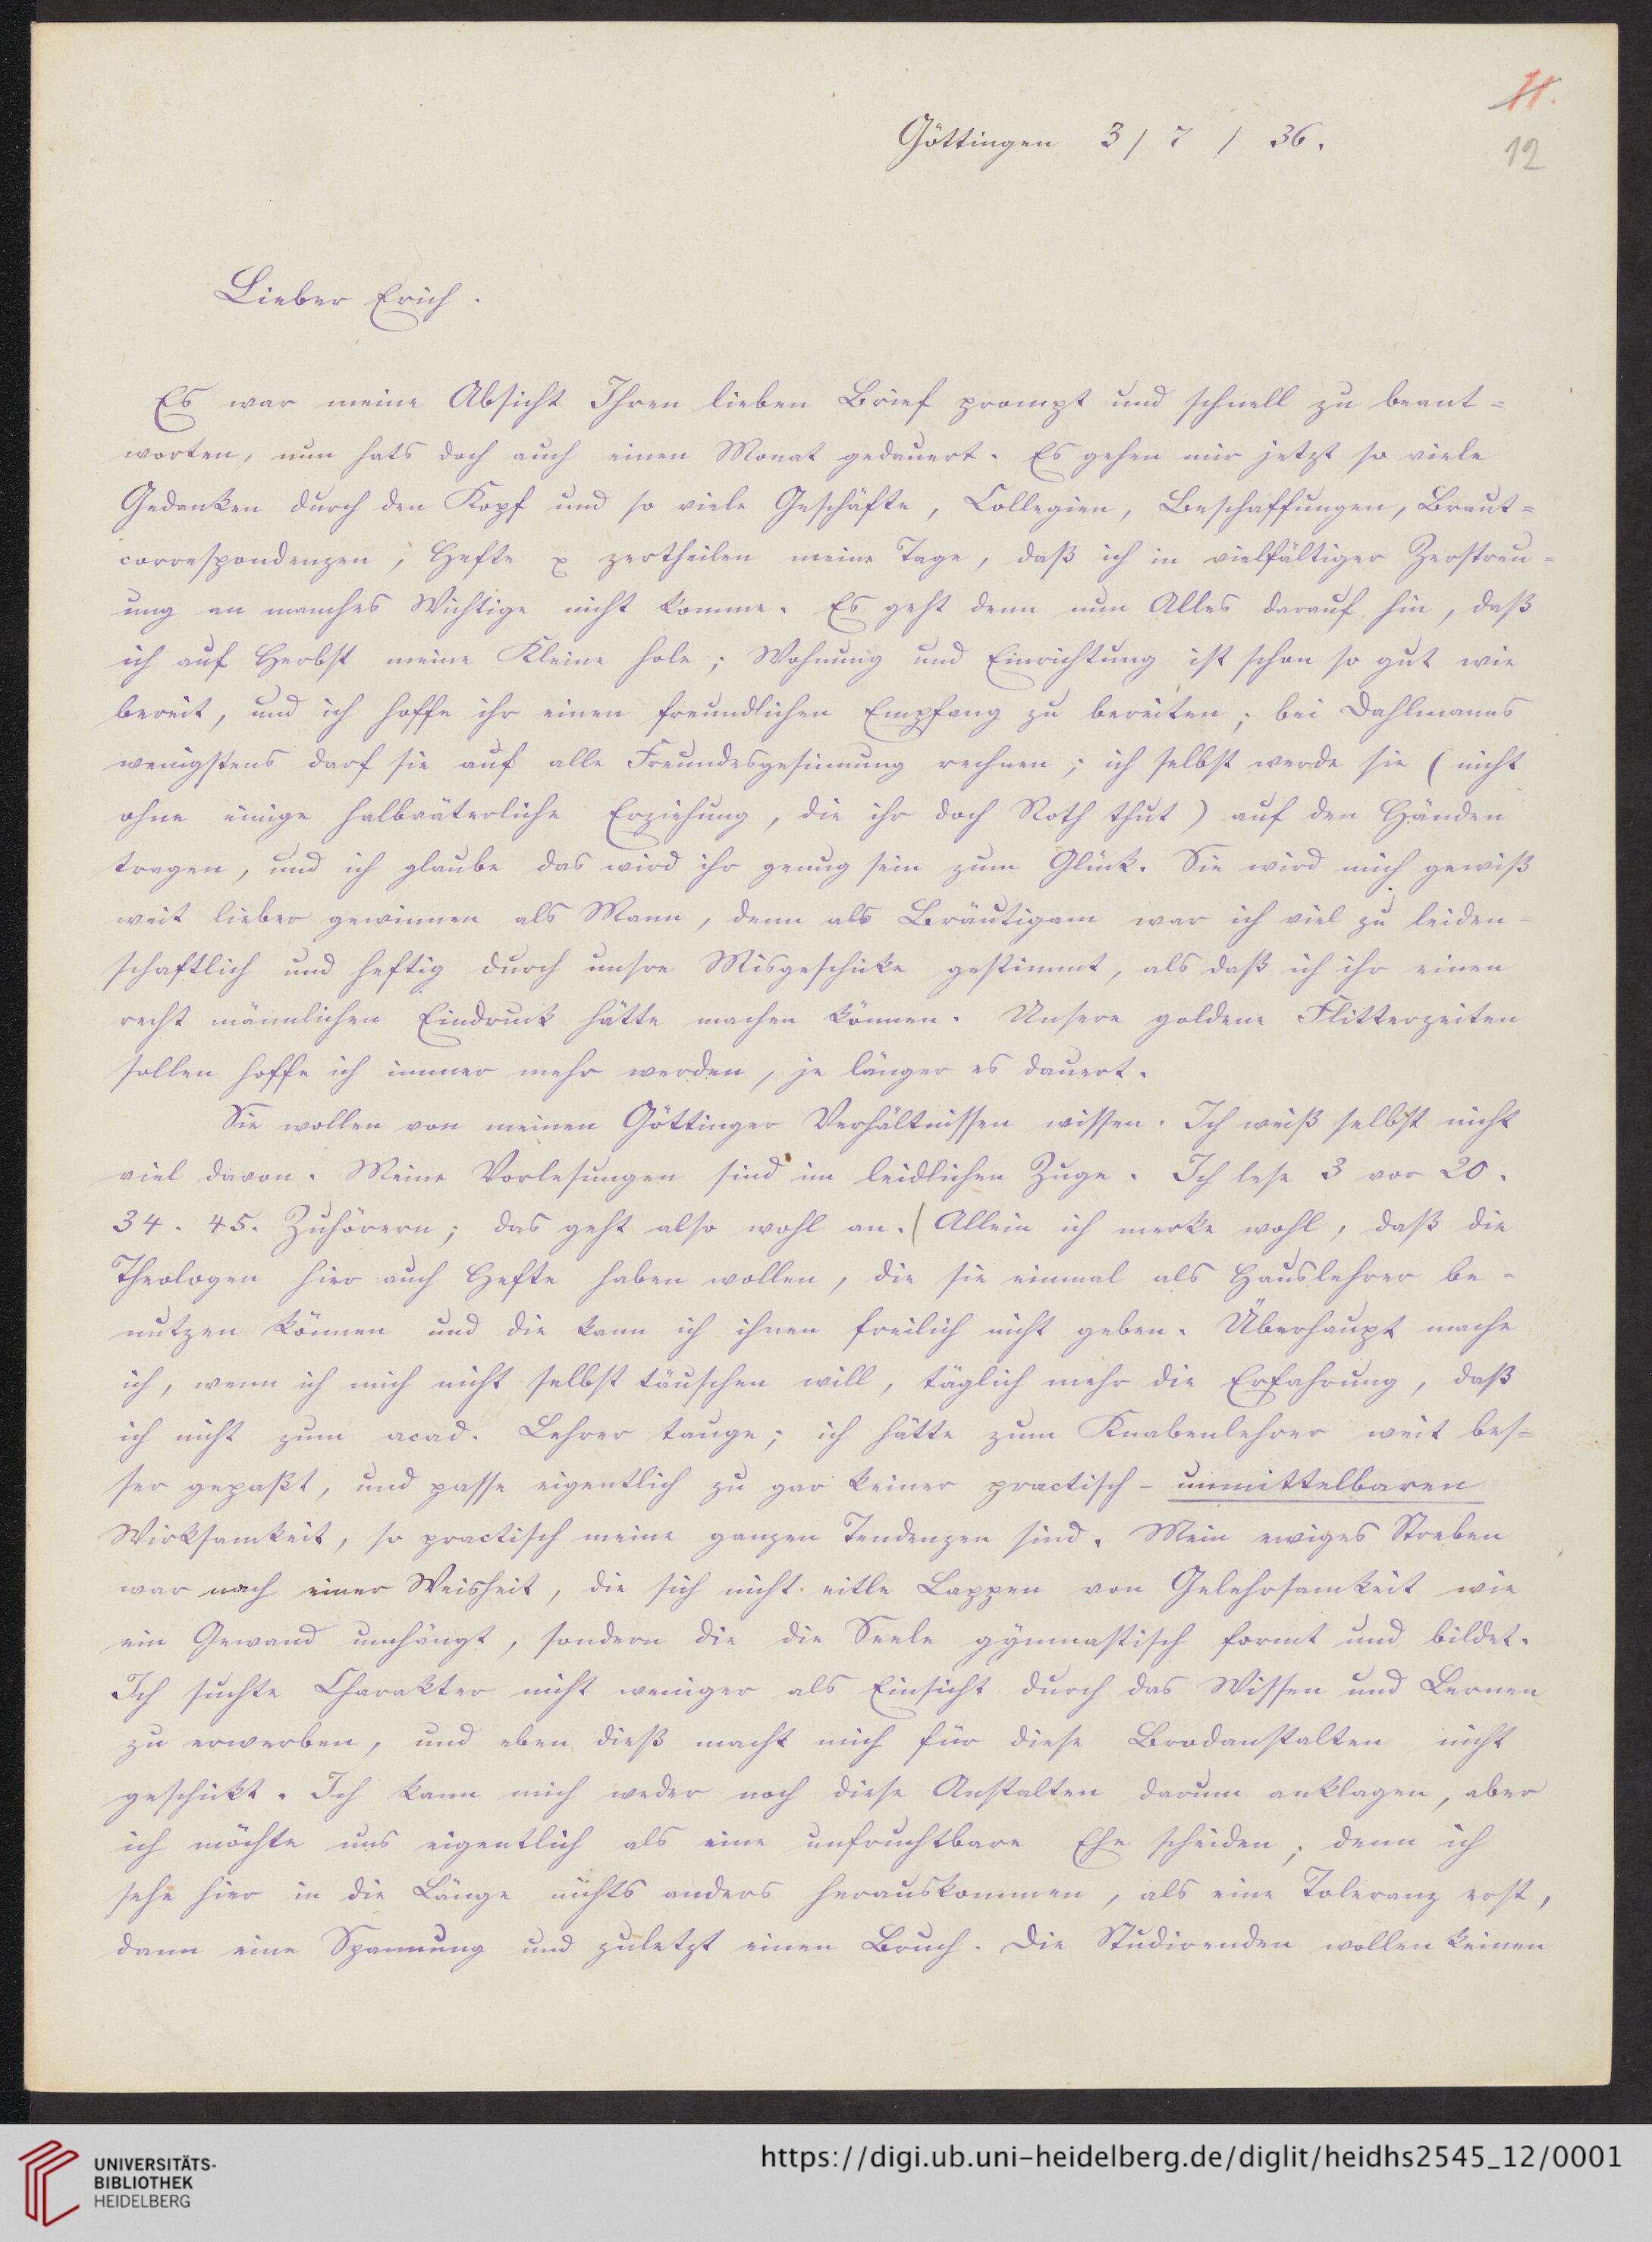 11.
Göttingen 3/ 7 / 36.
12
Lieber Erich.
Es war meine Absicht Ihren lieben Brief prompt und schnell zu beant=
worten, nun hats doch auch einen Monat gedauert. Es gehen mir jetzt so viele
Gedanken durch den Kopf und so viele Geschäfte, Collegien, Beschaffungen, Braut=
correspondenzen, Hefte x zertheilen meine Tage, daß ich in vielfältiger Zerstreu=
ung an manches Wichtige nicht komme. Es geht denn nun Alles darauf hin, daß
ich auf Herbst meine Kleine hole; Wohnung und Einrichtung ist schon so gut wie
bereit, und ich hoffe ihr einen freundlichen Empfang zu bereiten; bei Dahlmanns
wenigstens darf sie auf alle Freundesgesinnung rechnen; ich selbst werde sie (nicht
ohne einige halbväterliche Erziehung, die ihr doch Noth thut) auf den Händen
tragen, und ich glaube das wird ihr genug sein zum Glück. Sie wird mich gewiß
weit lieber gewinnen als Mann, denn als Bräutigam war ich viel zu leiden=
schaftlich und heftig durch unsre Misgeschicke gestimmt, als daß ich ihr einen
recht männlichen Eindruck hätte machen können. Unsere goldene Flitterzeiten
sollen hoffe ich immer mehr werden, je länger es dauert.
Sie wollen von meinen Göttinger Verhältnissen wissen. Ich weiß selbst nicht
viel davon. Meine Vorlesungen sind im leidlichen Zuge. Ich lese 3 vor 20.
34. 45. Zuhörern; das geht also wohl an. (Allein ich merke wohl, daß die
Theologen hier auch Hefte haben wollen, die sie einmal als Hauslehrer be=
nutzen können und die kann ich ihnen freilich nicht geben. Überhaupt mache
ich, wenn ich mich nicht selbst täuschen will, täglich mehr die Erfahrung, daß
ich nicht zum acad. Lehrer tauge; ich hätte zum Knabenlehrer weit bes=
ser gepaßt, und passe eigentlich zu gar keiner practisch-unmittelbaren
Wirksamkeit, so practisch meine ganzen Tendenzen sind. Mein ewiges Streben
war nach einer Weisheit, die sich nicht eitle Lappen von Gelehrsamkeit wie
ein Gewand umhängt, sondern die die Seele gymnastisch formt und bildet.
Ich suchte Charakter nicht weniger als Einsicht durch das Wissen und Lernen
zu erwerben, und eben dieß macht mich für diese Brodanstalten nicht
geschickt. Ich kann mich weder noch diese Anstalten darum anklagen, aber
ich möchte uns eigentlich als eine unfruchtbare Ehe scheiden; denn ich
sehe hier in die Länge nichts anders herauskommen, als eine Toleranz erst,
dann eine Spannung und zuletzt einen Bruch. Die Studirenden wollen keinen
UNIVERSITÄTS-
BIBLIOTHEK
HEIDELBERG
https://digi.ub.uni-heidelberg.de/diglit/heidhs2545_12/0001